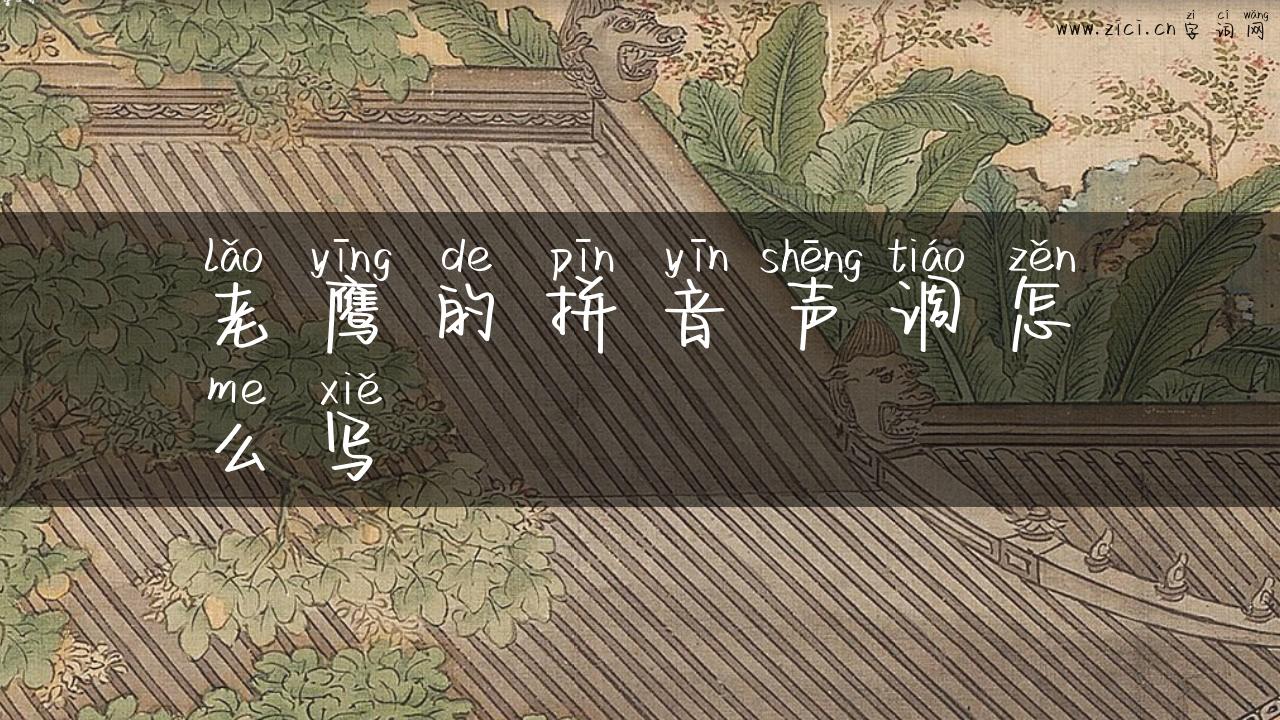 zì cí wǎng
www.zici.cn 字词网
lǎo yīng de pīn yīn shēng tiáo zěn
老鹰的拼音声调怎
me xiě
么写